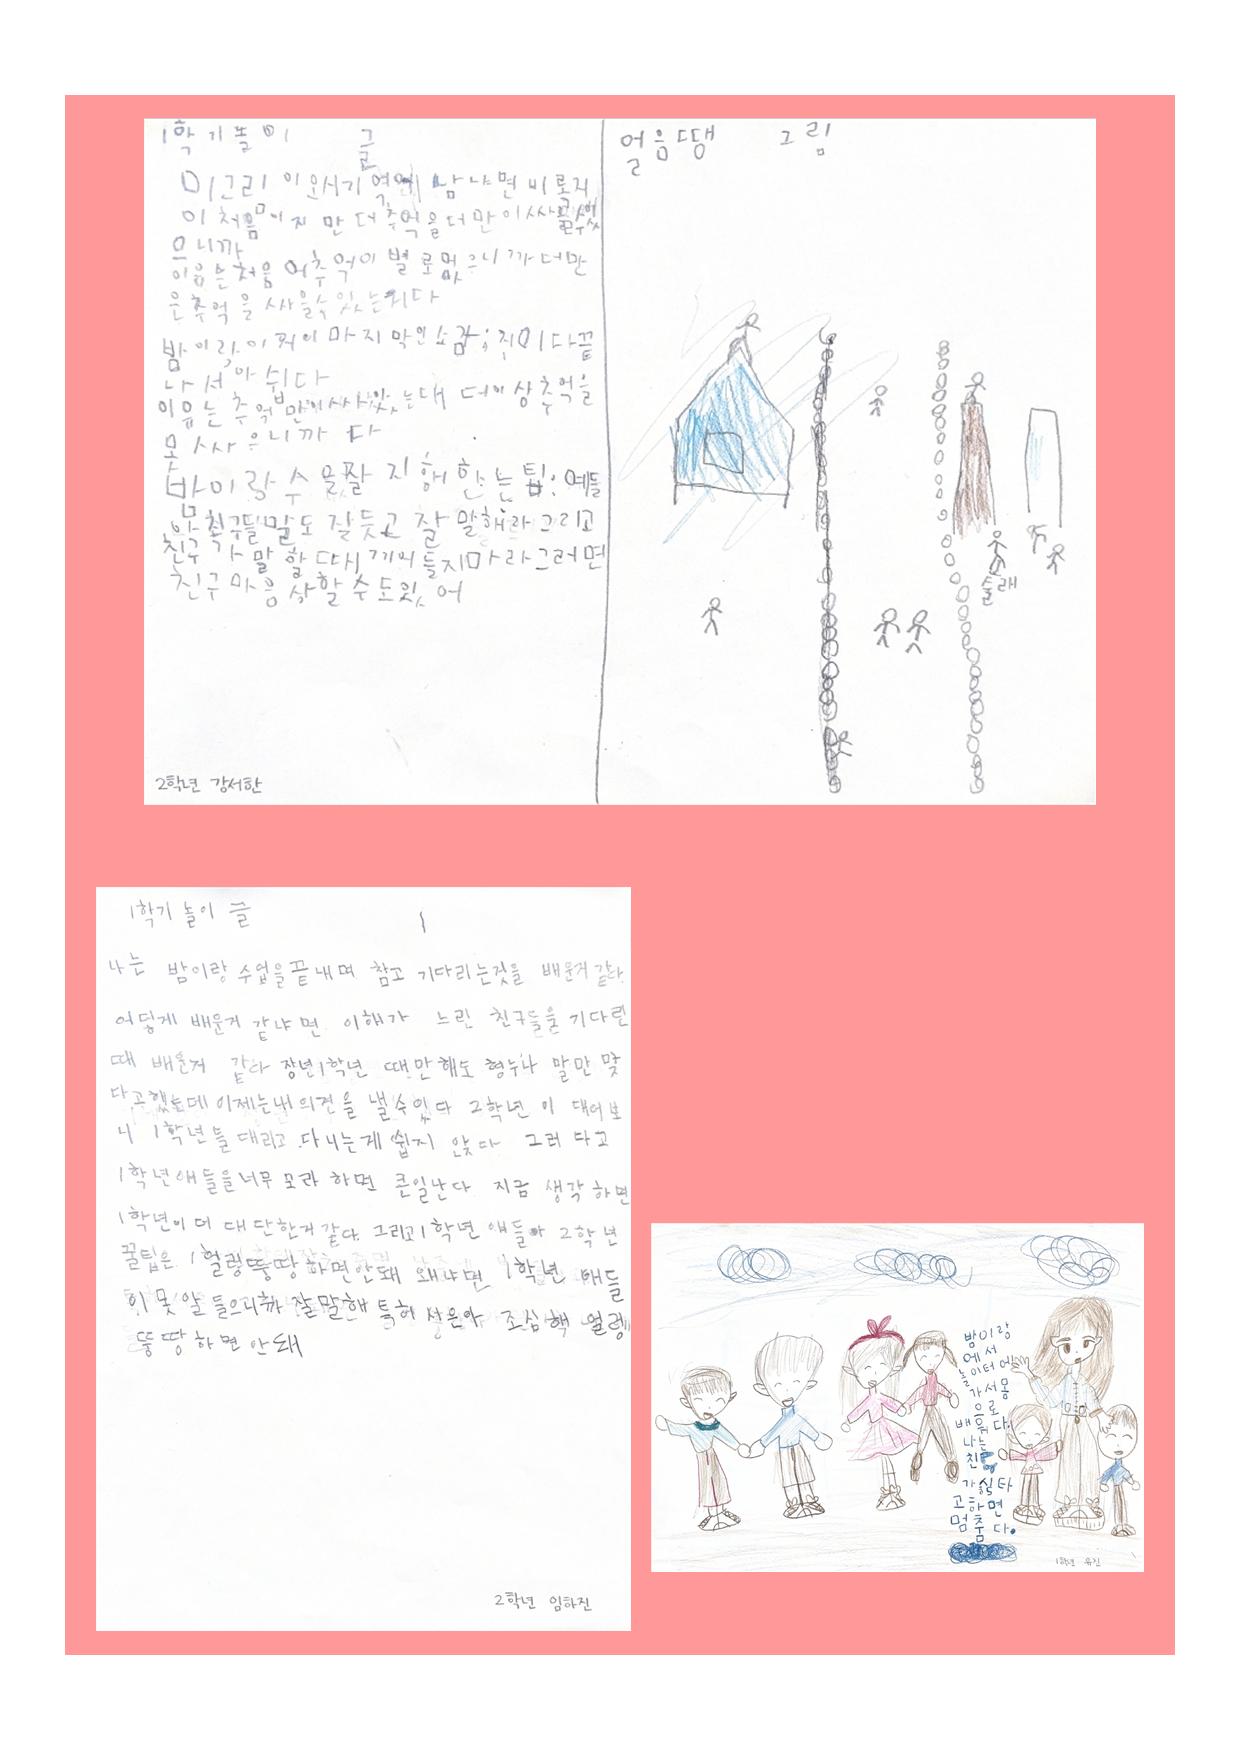 1학기놀이 글
미그리 이 모서기 억에 남냐면 비록지
이 처음이지 만 더 추억을 더 만이 싸을수있
으니까
이유는 처음 어추 억이 별 로 없으니 까 더만
은추억 을 싸을수 있는 다
밤이랑 이 마지 막인소감; 이다끝
나 서 아 쉬다
이유는 추억 만이싸사있는대 더이상추억을
못싸으니까 다
바이랑 수 잘 지 해 한 는 팁: 예들
친구들말도 잘듯고 잘 말해라 그리고
친구 가 말 할 때 들지마라 그러면
친구 마음 상할 수도있 어
2학년 강서한
얼음땡 그림
술래
1학기 놀이 글
나는 밤이랑 수업을끝내며 참고 기다리는것을 배운거 같다.
어떻게 배운거 같냐면 이해가 느린 친구들을 기다린
때 배운거 같다 장년1학년 때만해도 형누나 말만 맞
다고했는데 이제는내의견을 낼수있다 2학년 이 대어보
니 1학년들 대리고 다니는게 쉽지 않다 그러 다고
1학년애들을너무 모라 하면 큰일난다 지금 생각 하면
1학년이 더 대단한거 같다. 그리고1학년 애들아 2학년
꿀팁은 1 얼렁뚱땅하면안돼 왜냐면 1학년 애들
이 못 알 들으니까 잘말해 특히 서은아 조심해 얼렁
뚱땅 하면 안돼
2학년 임하진
밤이랑
에서
놀이터에
가서 몸
으로
배운다.
나는
친
가싫타
고하면
멈춤다.
1학년 유진